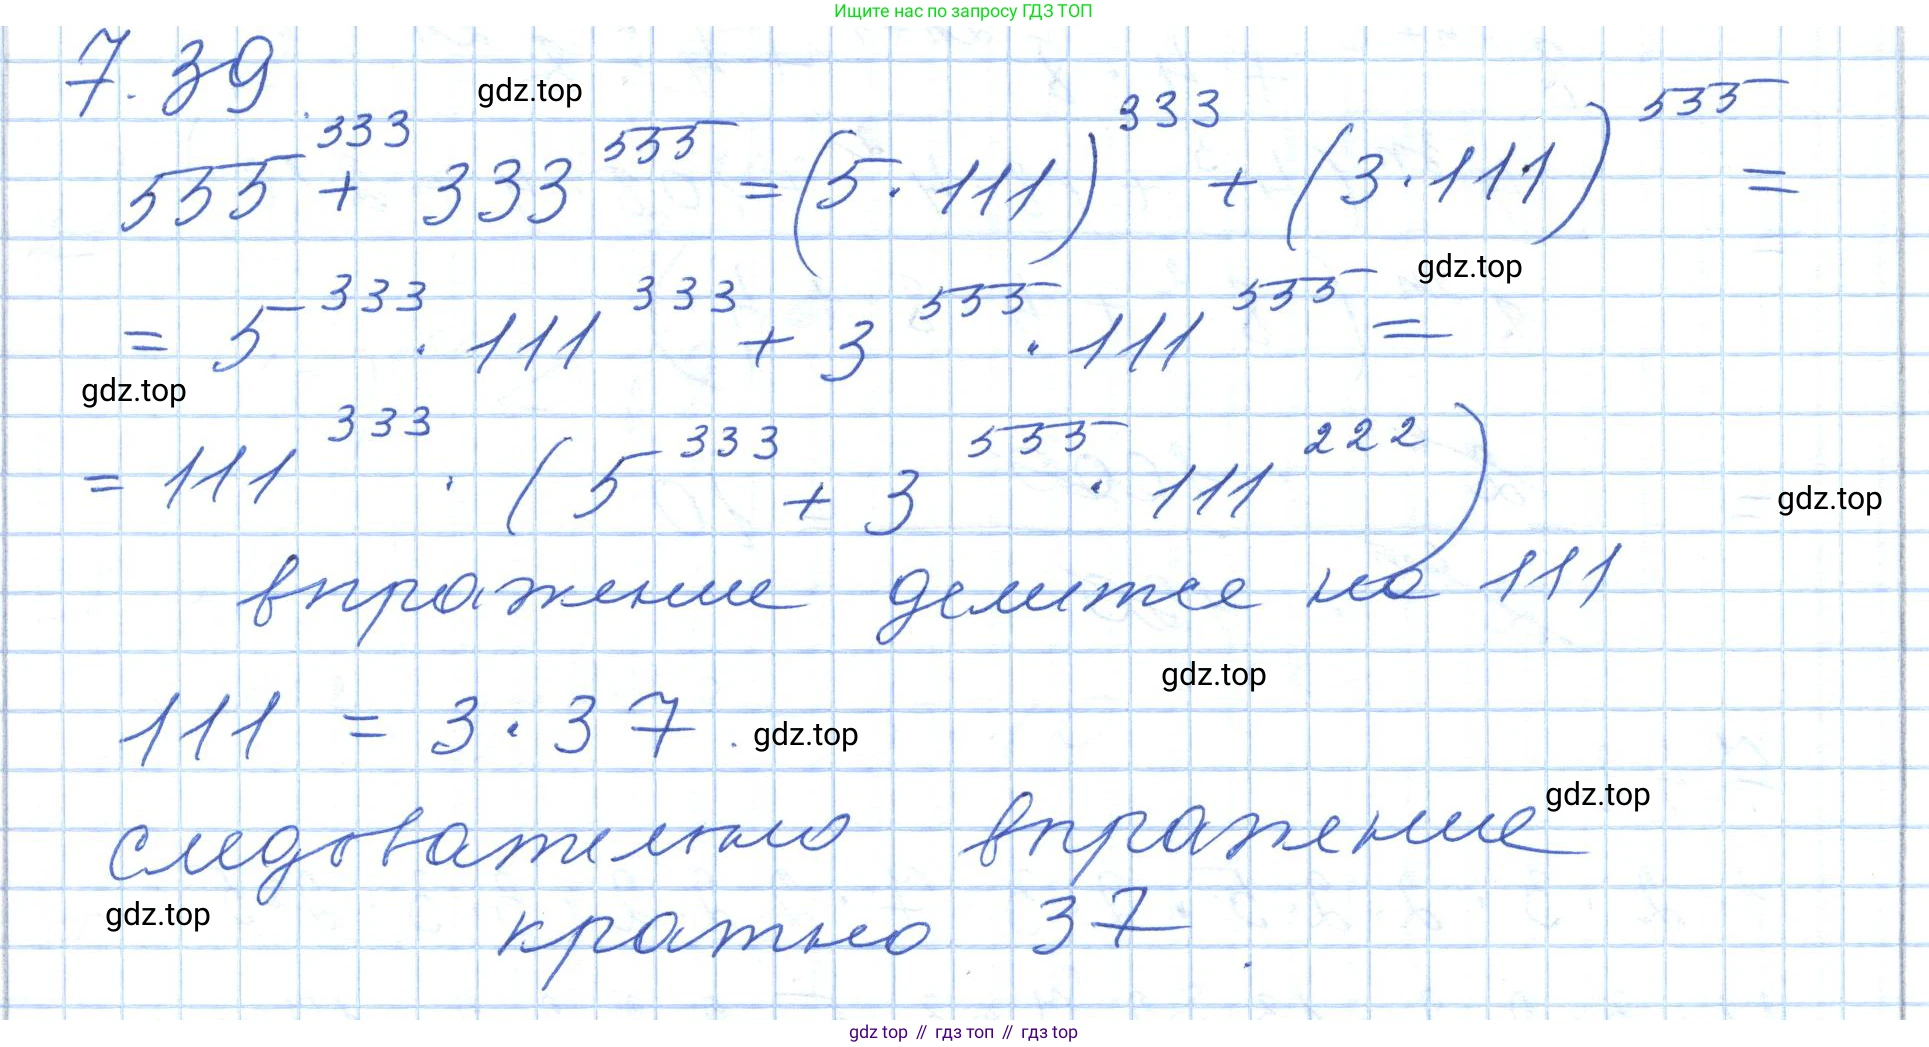 Ищите нас по запросу ГДЗ ТОП
7.39
gdz.top
555^333 + 333^555 = (5·111)^333 + (3·111)^555 =
gdz.top
= 5^333 · 111^333 + 3^555 · 111^555 =
gdz.top
= 111^333 · (5^333 + 3^555 · 111^222)
gdz.top
выражение делится на 111
gdz.top
111 = 3·37.
gdz.top
gdz.top
следовательно выражение
gdz.top
кратно 37.
gdz top // гдз топ // гдз top